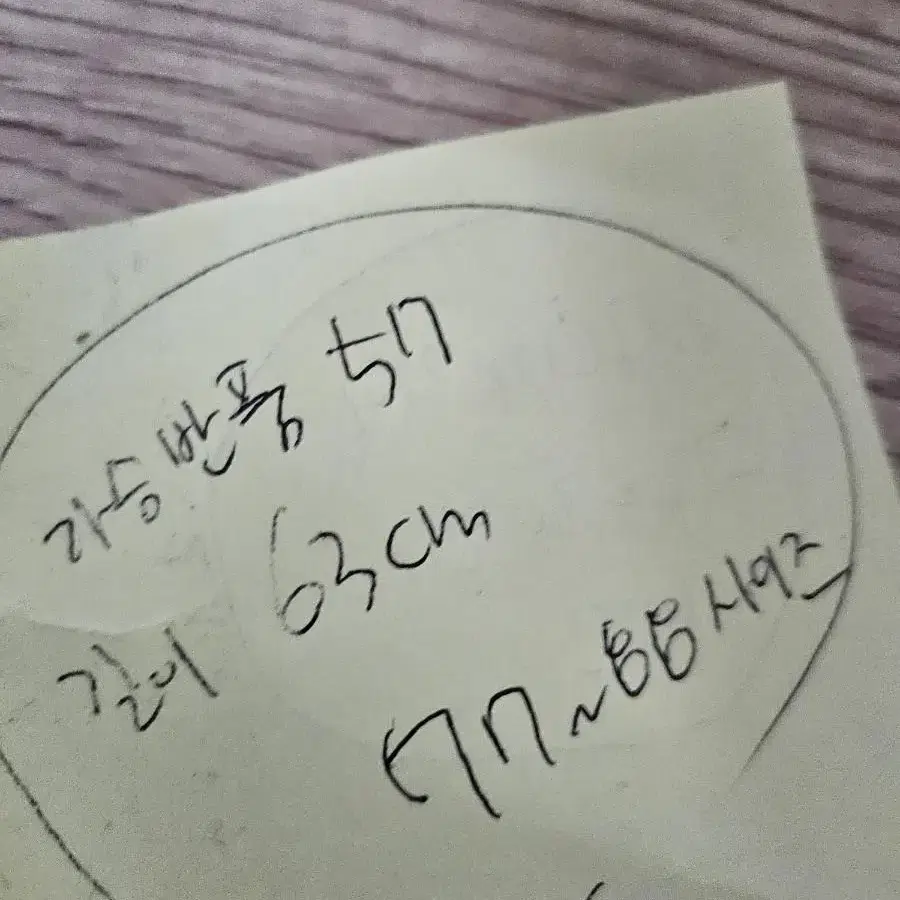 가슴반품 57
길이 63cm
77~88시이즈